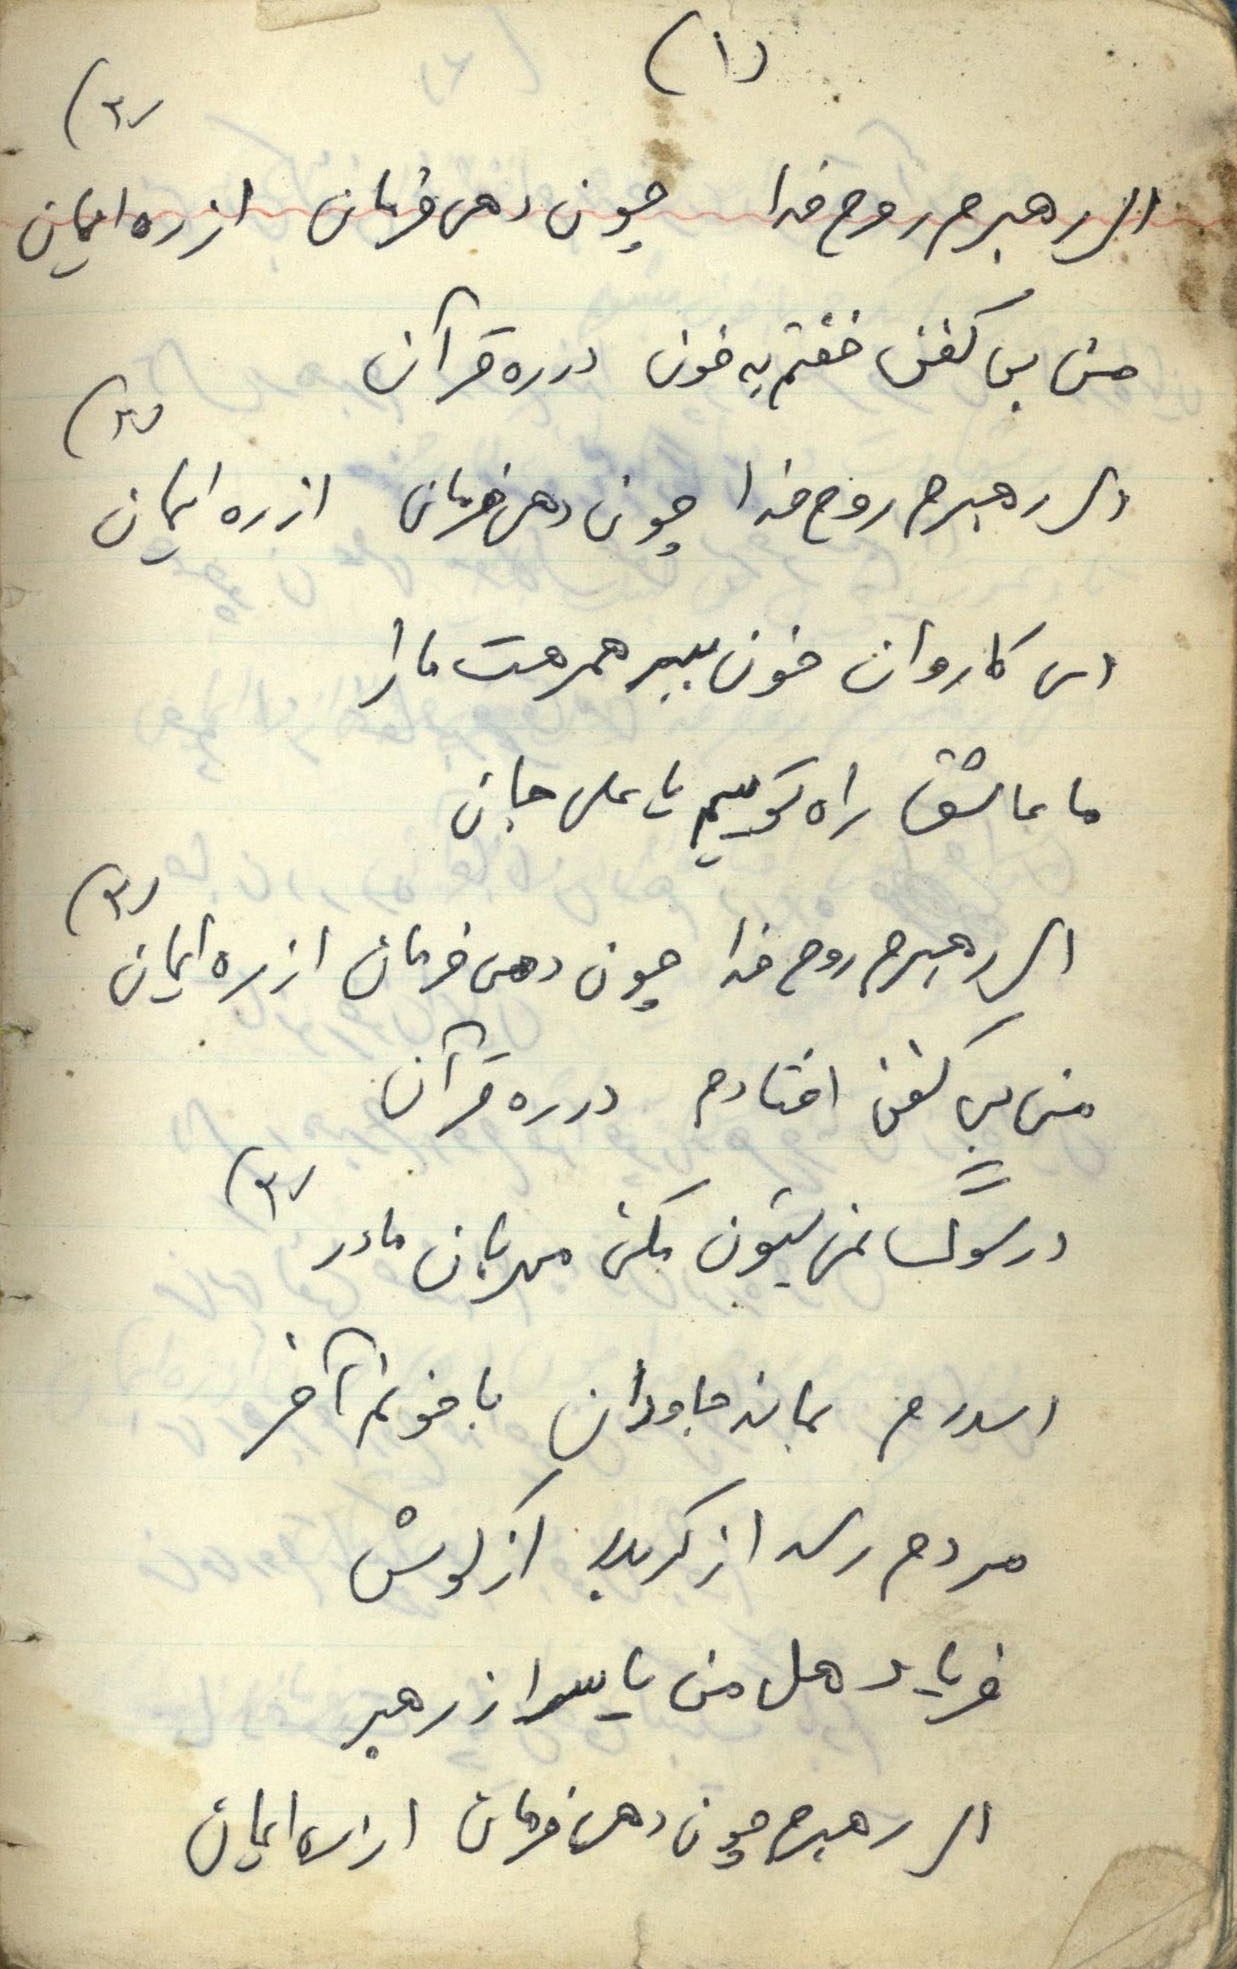 (۱)
(۳)
ای رهبرم روح خدا چون دهی فرمان از ره ایمان
من بی کفن خفتم به خون در ره قرآن
(۲)
ای رهبرم روح خدا چون دهی فرمان از ره ایمان
ای کاروان خون ببر همرهت ما را
ما عاشق راه توییم یا علی جان
(۳)
ای رهبرم روح خدا چون دهی فرمان از ره ایمان
من بی کفن افتادم در ره قرآن
(۳)
در سوگ من شیون مکن مهربان مادر
بماند جاودان با خونم آخر
مردم رسد از کربلا از
فریاد هل من یا از رهبر
ای رهبرم چون دهی فرمان از ره ایمان